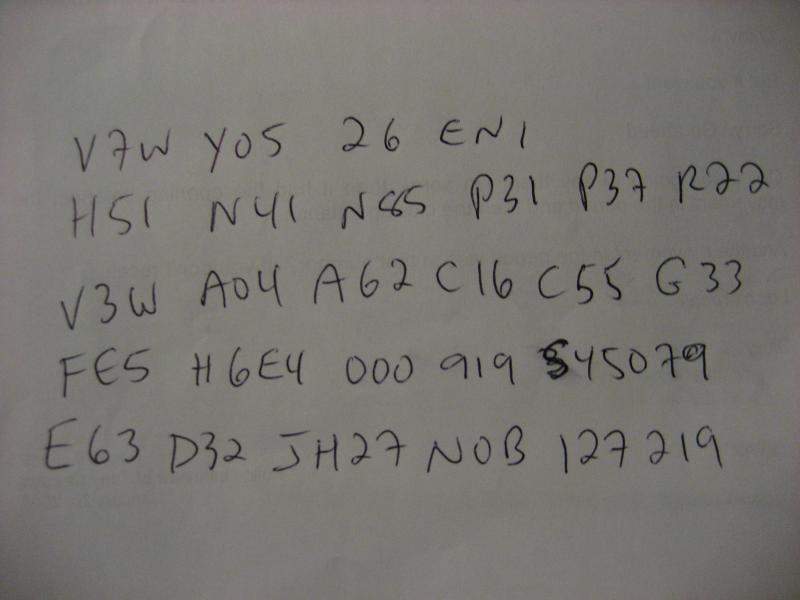 V7W Y05 26 EN1
H51 N41 N85 P31 P37 R22
V3W A04 A62 C16 C55 G33
FE5 H6E4 000 919 545079
E63 D32 JH27 NOB 127 219